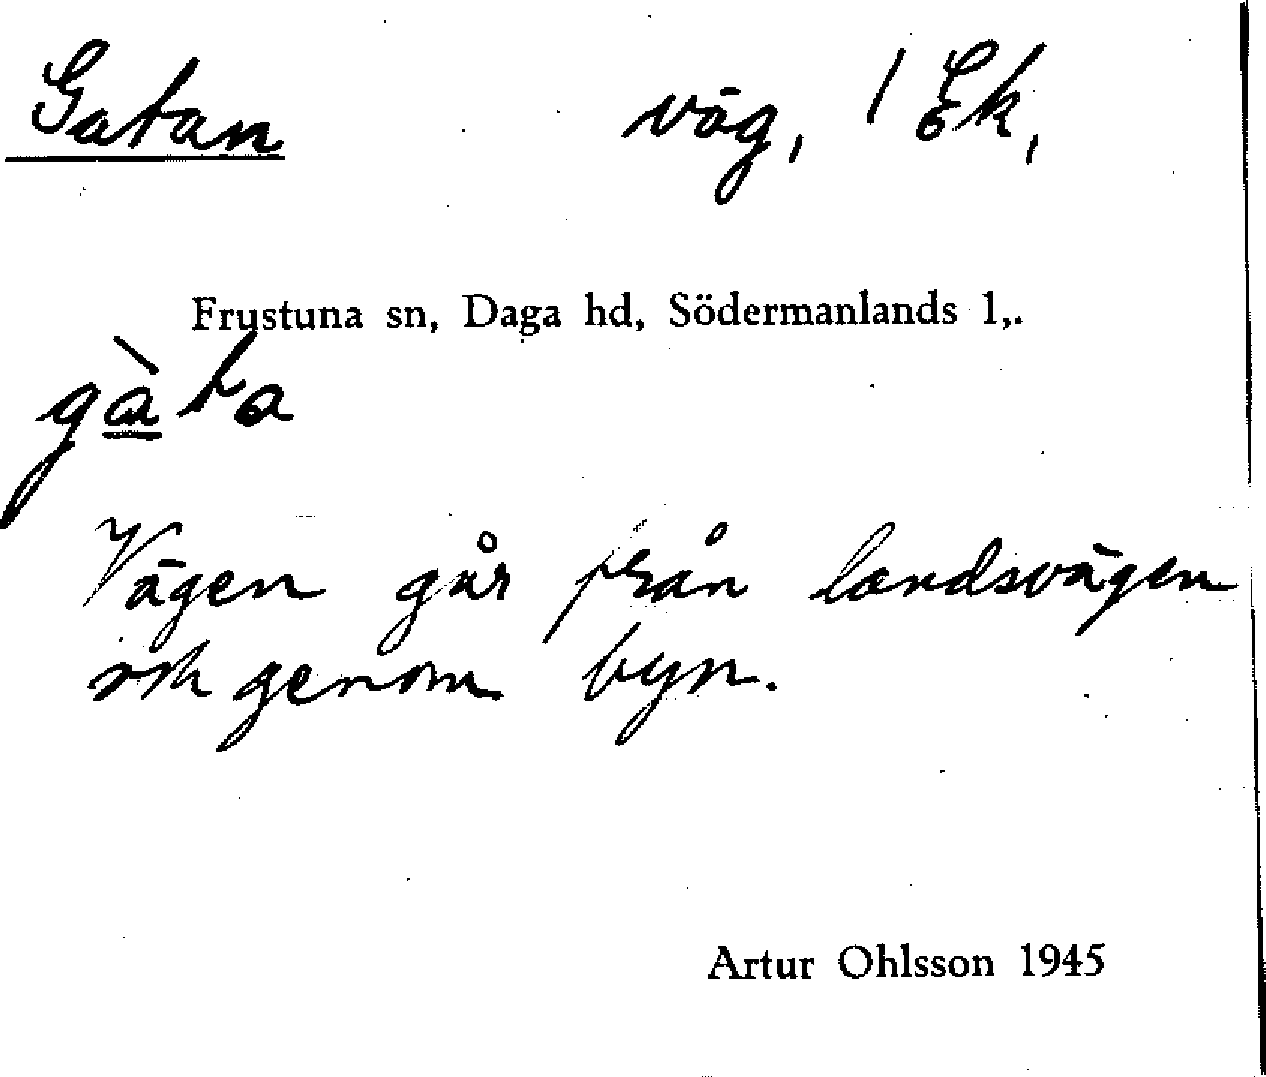 Gatan väg, 1 Ek,
Frustuna sn, Daga hd, Södermanlands l,.
gàta
Vägen går från landsvägen
och genom byn.
Artur Ohlsson 1945